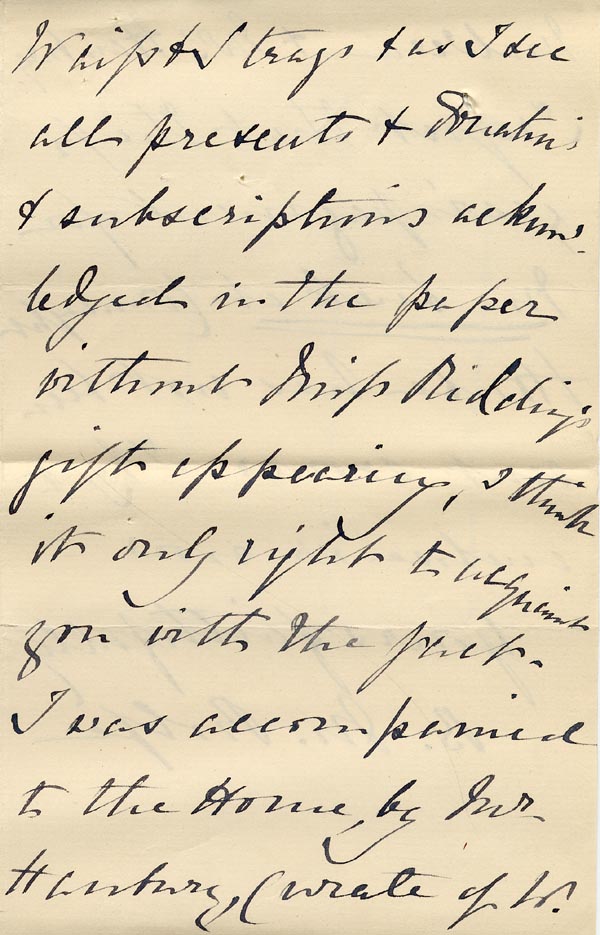 Waifs & Strays & as I see
all presents & Donations
& subscriptions acknow-
ledged in the paper
without Miss Riddings
gift appearing, I think
it only right to acquaint
you with the fact.
I was accompanied
to the Home, by Mr
Hanbury, Curate of W.